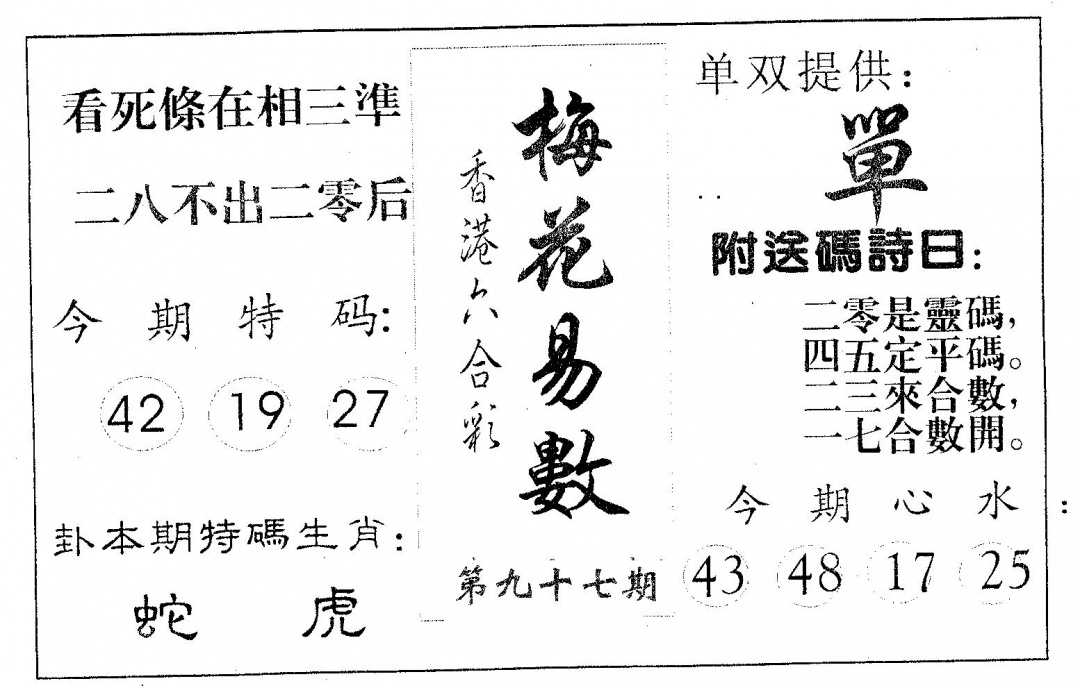 看死條在相三準
二八不出二零后
今期特码:
42 19 27
卦本期特碼生肖:
蛇 虎
梅花易數
香港六合彩
第九十七期
单双提供:
單
附送碼詩曰:
二零是靈碼,
四五定平碼。
二三來合數,
一七合數開。
今期心水:
43 48 17 25